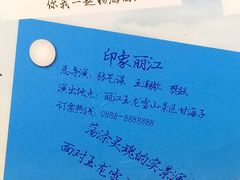 你我一起物
印象丽江
总导演:张艺谋 王潮歌 樊跃
演出地点:丽江玉龙雪山景区甘海子
订票热线:0888-8888888
荡涤灵魂的实景演
面对玉龙雪